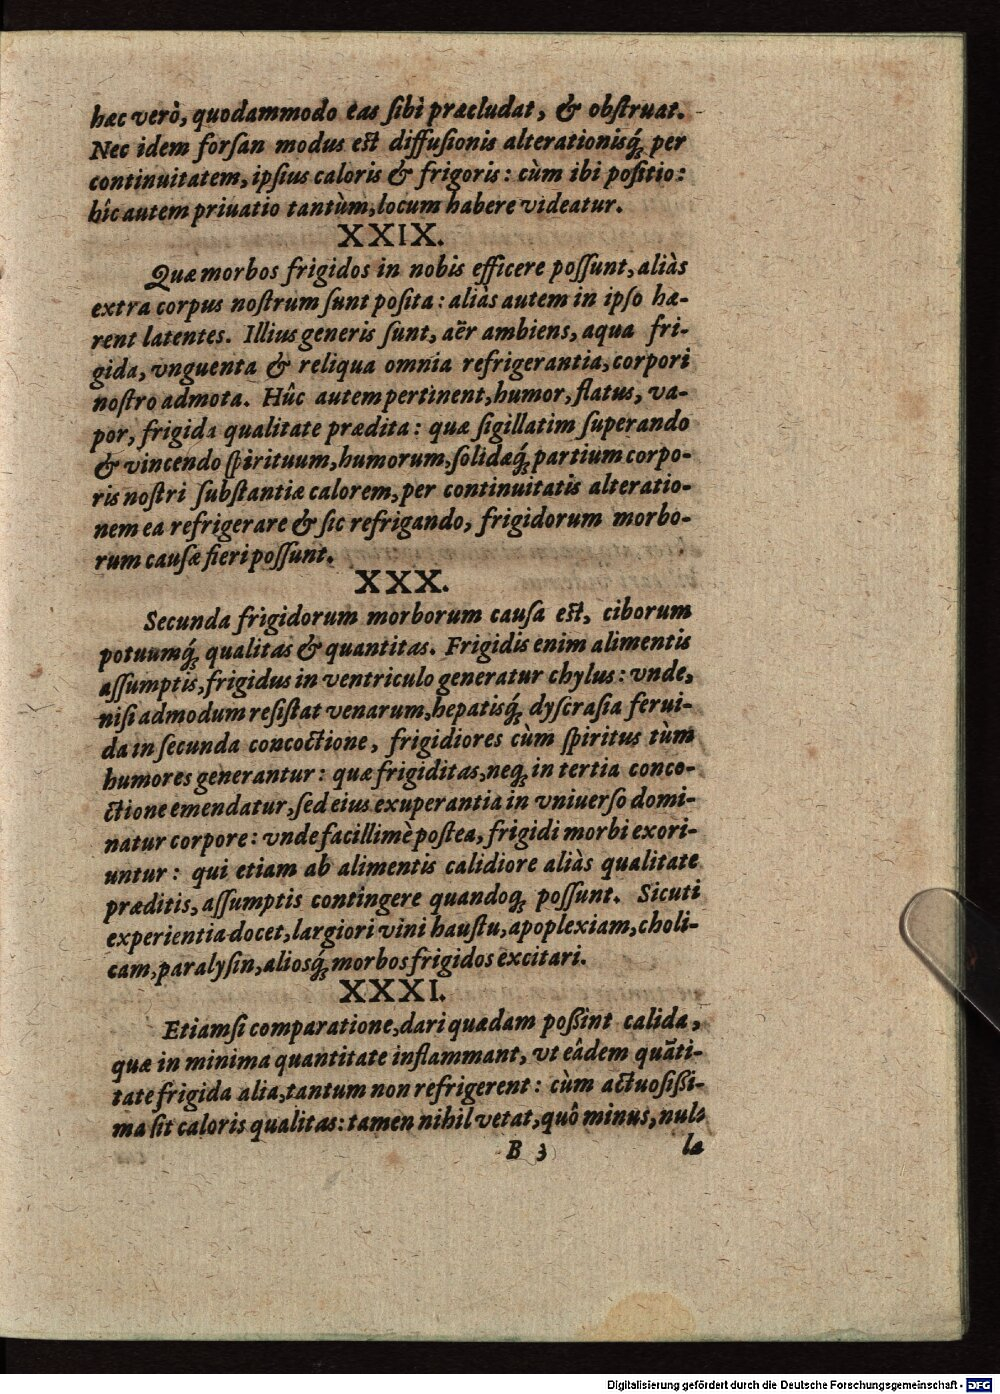 hæc verò, quodammodo eas ſibi præcludat, & obſtruat.
Nec idem forſan modus eſt diffuſionis alterationisq́; per
continuitatem, ipſius caloris & frigoris: cùm ibi poſitio:
hîc autem priuatio tantùm, locum habere videatur.
XXIX.
Quæ morbos frigidos in nobis efficere poſſunt, aliàs
extra corpus noſtrum ſunt poſita: aliàs autem in ipſo hæ-
rent latentes. Illius generis ſunt, aër ambiens, aqua fri-
gida, vnguenta & reliqua omnia refrigerantia, corpori
noſtro admota. Hûc autem pertinent, humor, flatus, va-
por, frigida qualitate prædita: quæ ſigillatim ſuperando
& vincendo ſpirituum, humorum, ſolidæq́; partium corpo-
ris noſtri ſubſtantiæ calorem, per continuitatis alteratio-
nem ea refrigerare & ſic refrigando, frigidorum morbo-
rum cauſæ fieri poſſunt.
XXX.
Secunda frigidorum morborum cauſa eſt, ciborum
potuumq́; qualitas & quantitas. Frigidis enim alimentis
aſſumptis, frigidus in ventriculo generatur chylus: vnde,
niſi admodum reſiſtat venarum, hepatisq́; dyſcraſia ferui-
da in ſecunda concoctione, frigidiores cùm ſpiritus tùm
humores generantur: quæ frigiditas, neq; in tertia conco-
ctione emendatur, ſed eius exuperantia in vniuerſo domi-
natur corpore: vnde facillimè poſtea, frigidi morbi exori-
untur: qui etiam ab alimentis calidiore aliàs qualitate
præditis, aſſumptis contingere quandoq; poſſunt. Sicuti
experientia docet, largiori vini hauſtu, apoplexiam, choli-
cam, paralyſin, aliosq́; morbos frigidos excitari.
XXXI.
Etiamſi comparatione, dari quædam poßint calida,
quæ in minima quantitate inflammant, vt eâdem quãti-
tate frigida alia, tantum non refrigerent: cùm actuoſißi-
ma ſit caloris qualitas: tamen nihil vetat, quô minus, nul-
B 3 la
Digitalisierung gefördert durch die Deutsche Forschungsgemeinschaft - DFG